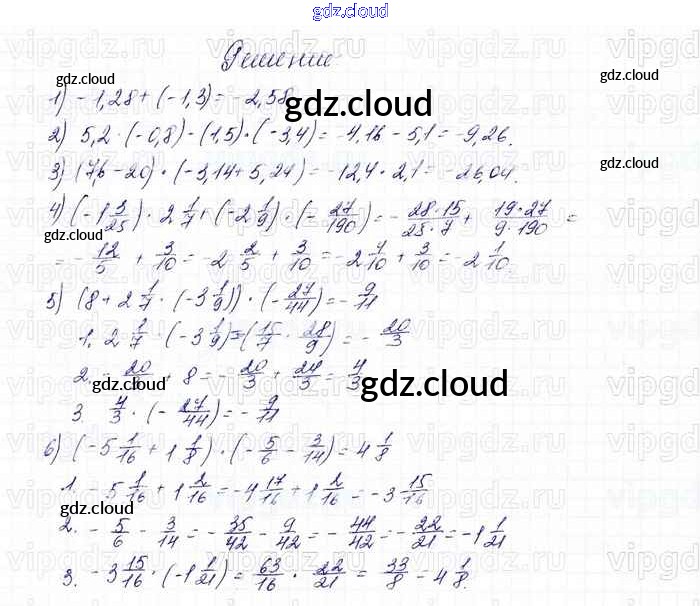 gdz.cloud
Решение
gdz.cloud
gdz.cloud
1) -1,28 + (-1,3) = -2,58
gdz.cloud
2) 5,2 · (-0,8) - (1,5) · (-3,4) = -4,16 - 5,1 = -9,26.
3) (7,6 - 20) · (-3,14 + 5,24) = -12,4 · 2,1 = -26,04.
gdz.cloud
4) (-1 3/25) · 2 1/7 + (-2 1/9) · (- 27/190) = - 28·15/25·7 + 19·27/9·190 =
gdz.cloud
= - 12/5 + 3/10 = -2 2/5 + 3/10 = -2 4/10 + 3/10 = -2 1/10.
5) (8 + 2 1/7 · (-3 1/9)) · (- 27/44) = - 9/11
1. 2 1/7 · (-3 1/9) = (15/7 · 28/9) = - 20/3
2. - 20/3 + 8 = - 20/3 + 24/3 = 4/3
gdz.cloud
gdz.cloud
3. 4/3 · (- 27/44) = - 9/11
6) (-5 1/16 + 1 1/8) · (- 5/6 - 3/14) = 4 1/8
1. -5 1/16 + 1 2/16 = -4 17/16 + 1 2/16 = -3 15/16
gdz.cloud
2. - 5/6 - 3/14 = - 35/42 - 9/42 = - 44/42 = - 22/21 = -1 1/21
3. -3 15/16 · (-1 1/21) = 63/16 · 22/21 = 33/8 - 4 1/8.